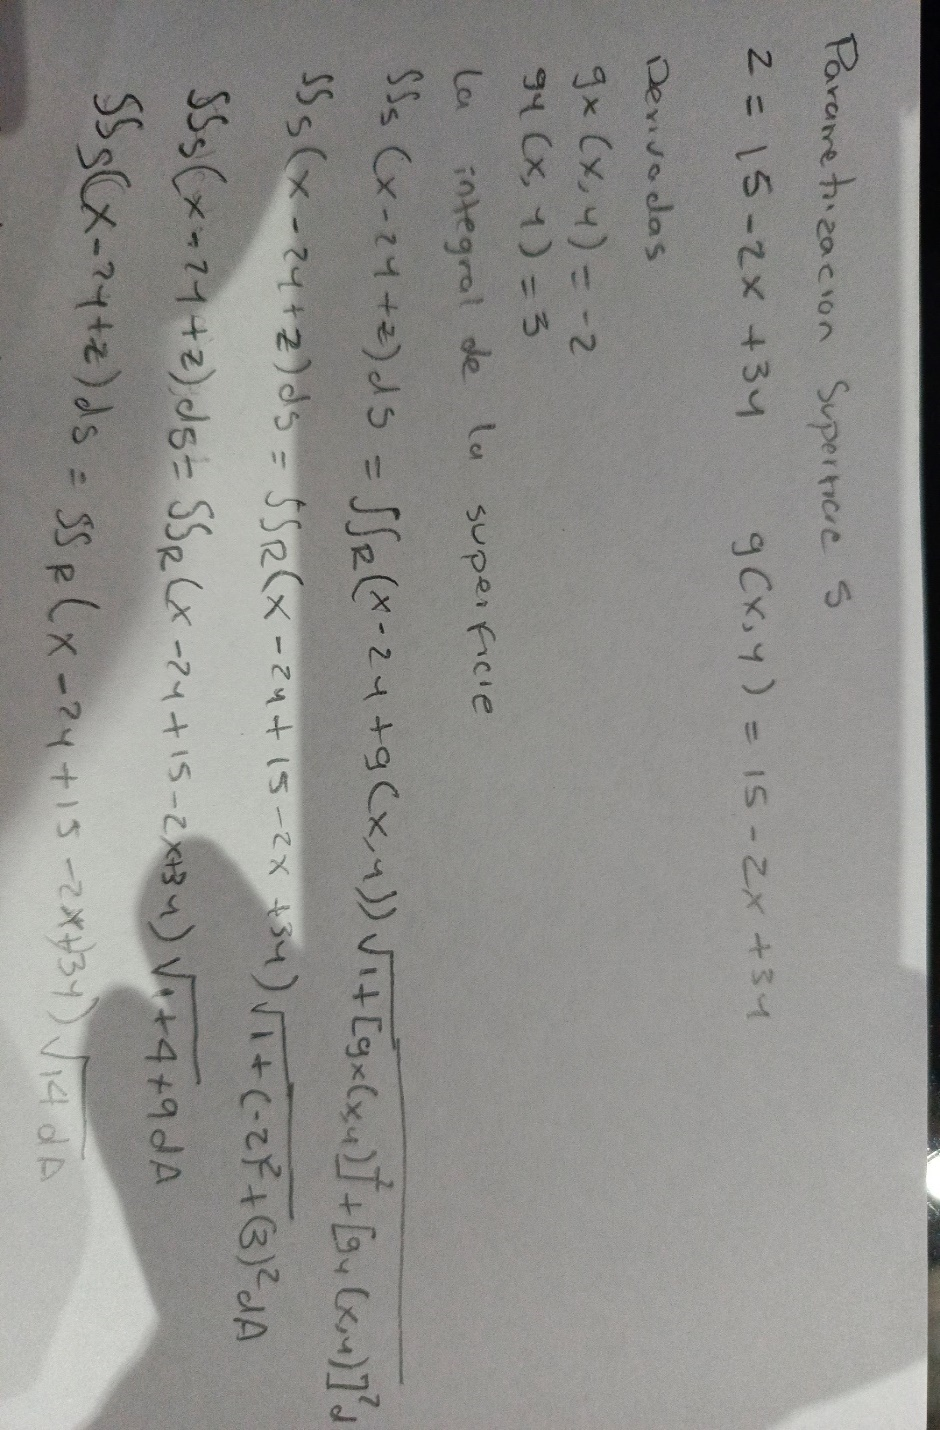 Parametrizacion Superficie S
z = 15 - 2x + 3y g(x,y) = 15 - 2x + 3y
Derivadas
gx(x,y) = -2
gy(x,y) = 3
La integral de la superficie
∫∫s (x-2y+z)ds = ∫∫R(x-2y+g(x,y))√1+[gx(x,y)]²+[gy(x,y)]²d
∫∫s(x-2y+z)ds = ∫∫R(x-2y+15-2x+3y)√1+(-2)²+(3)²dA
∫∫s(x-2y+z)ds = ∫∫R(x-2y+15-2x+3y)√1+4+9dA
∫∫s(x-2y+z)ds = ∫∫R(x-2y+15-2x+3y)√14dA